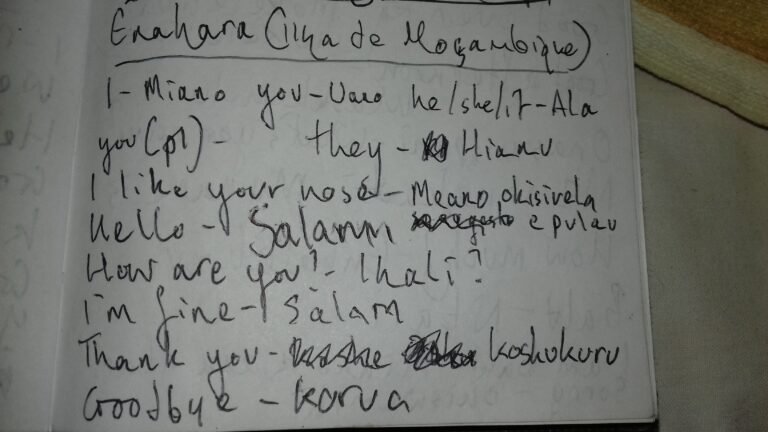 Enahara (Ilha de Moçambique)
I - Miano you - Uano he/she/it - Ala
you (pl) - they - Hianu
I like your nose - Meano okisivela
Hello - Salanm e pulau
How are you? - Ihali?
I'm fine - Salam
Thank you - koshukuru
Goodbye - korua